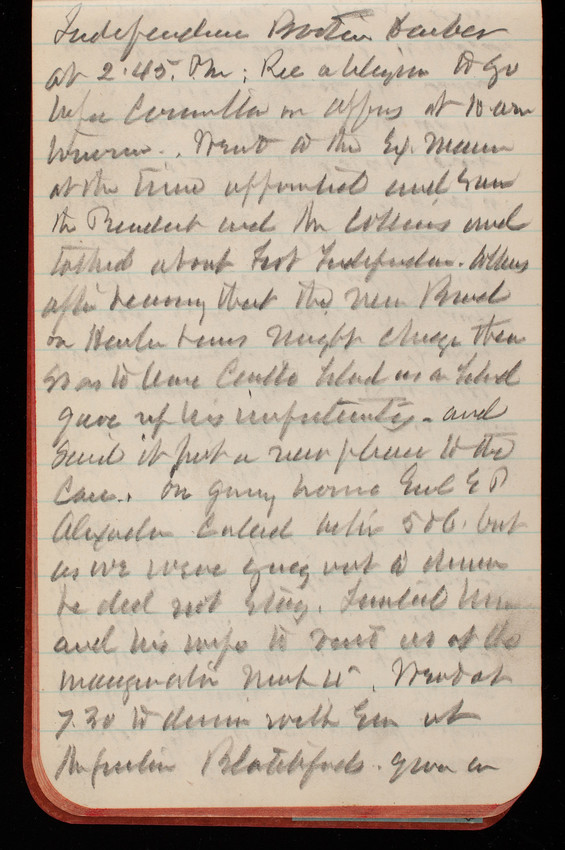 Independence Boston Harbor
at 2.45. Pm; Rec a telegm to go
before Committee on affairs at 10 am
tomorrow. Went to the Ex. Mansn
at the time appointed and saw
the President and Mr Collins and
talked about Fort Independen. Collins
after learning that the new Board
on Harbor Lines might change them
so as to leave Castle Island as an Island
gave up his importunity - and
said it put a new phase to the
Case. On going home Genl E P
Alexander Called after 5 o'c. but
as we were going out to dinner
he did not stay. Invited him
and his wife to visit us at the
inauguration March 4. Went at
7.30 to dinner with Em at
Mr Justice Blatchfords. given in